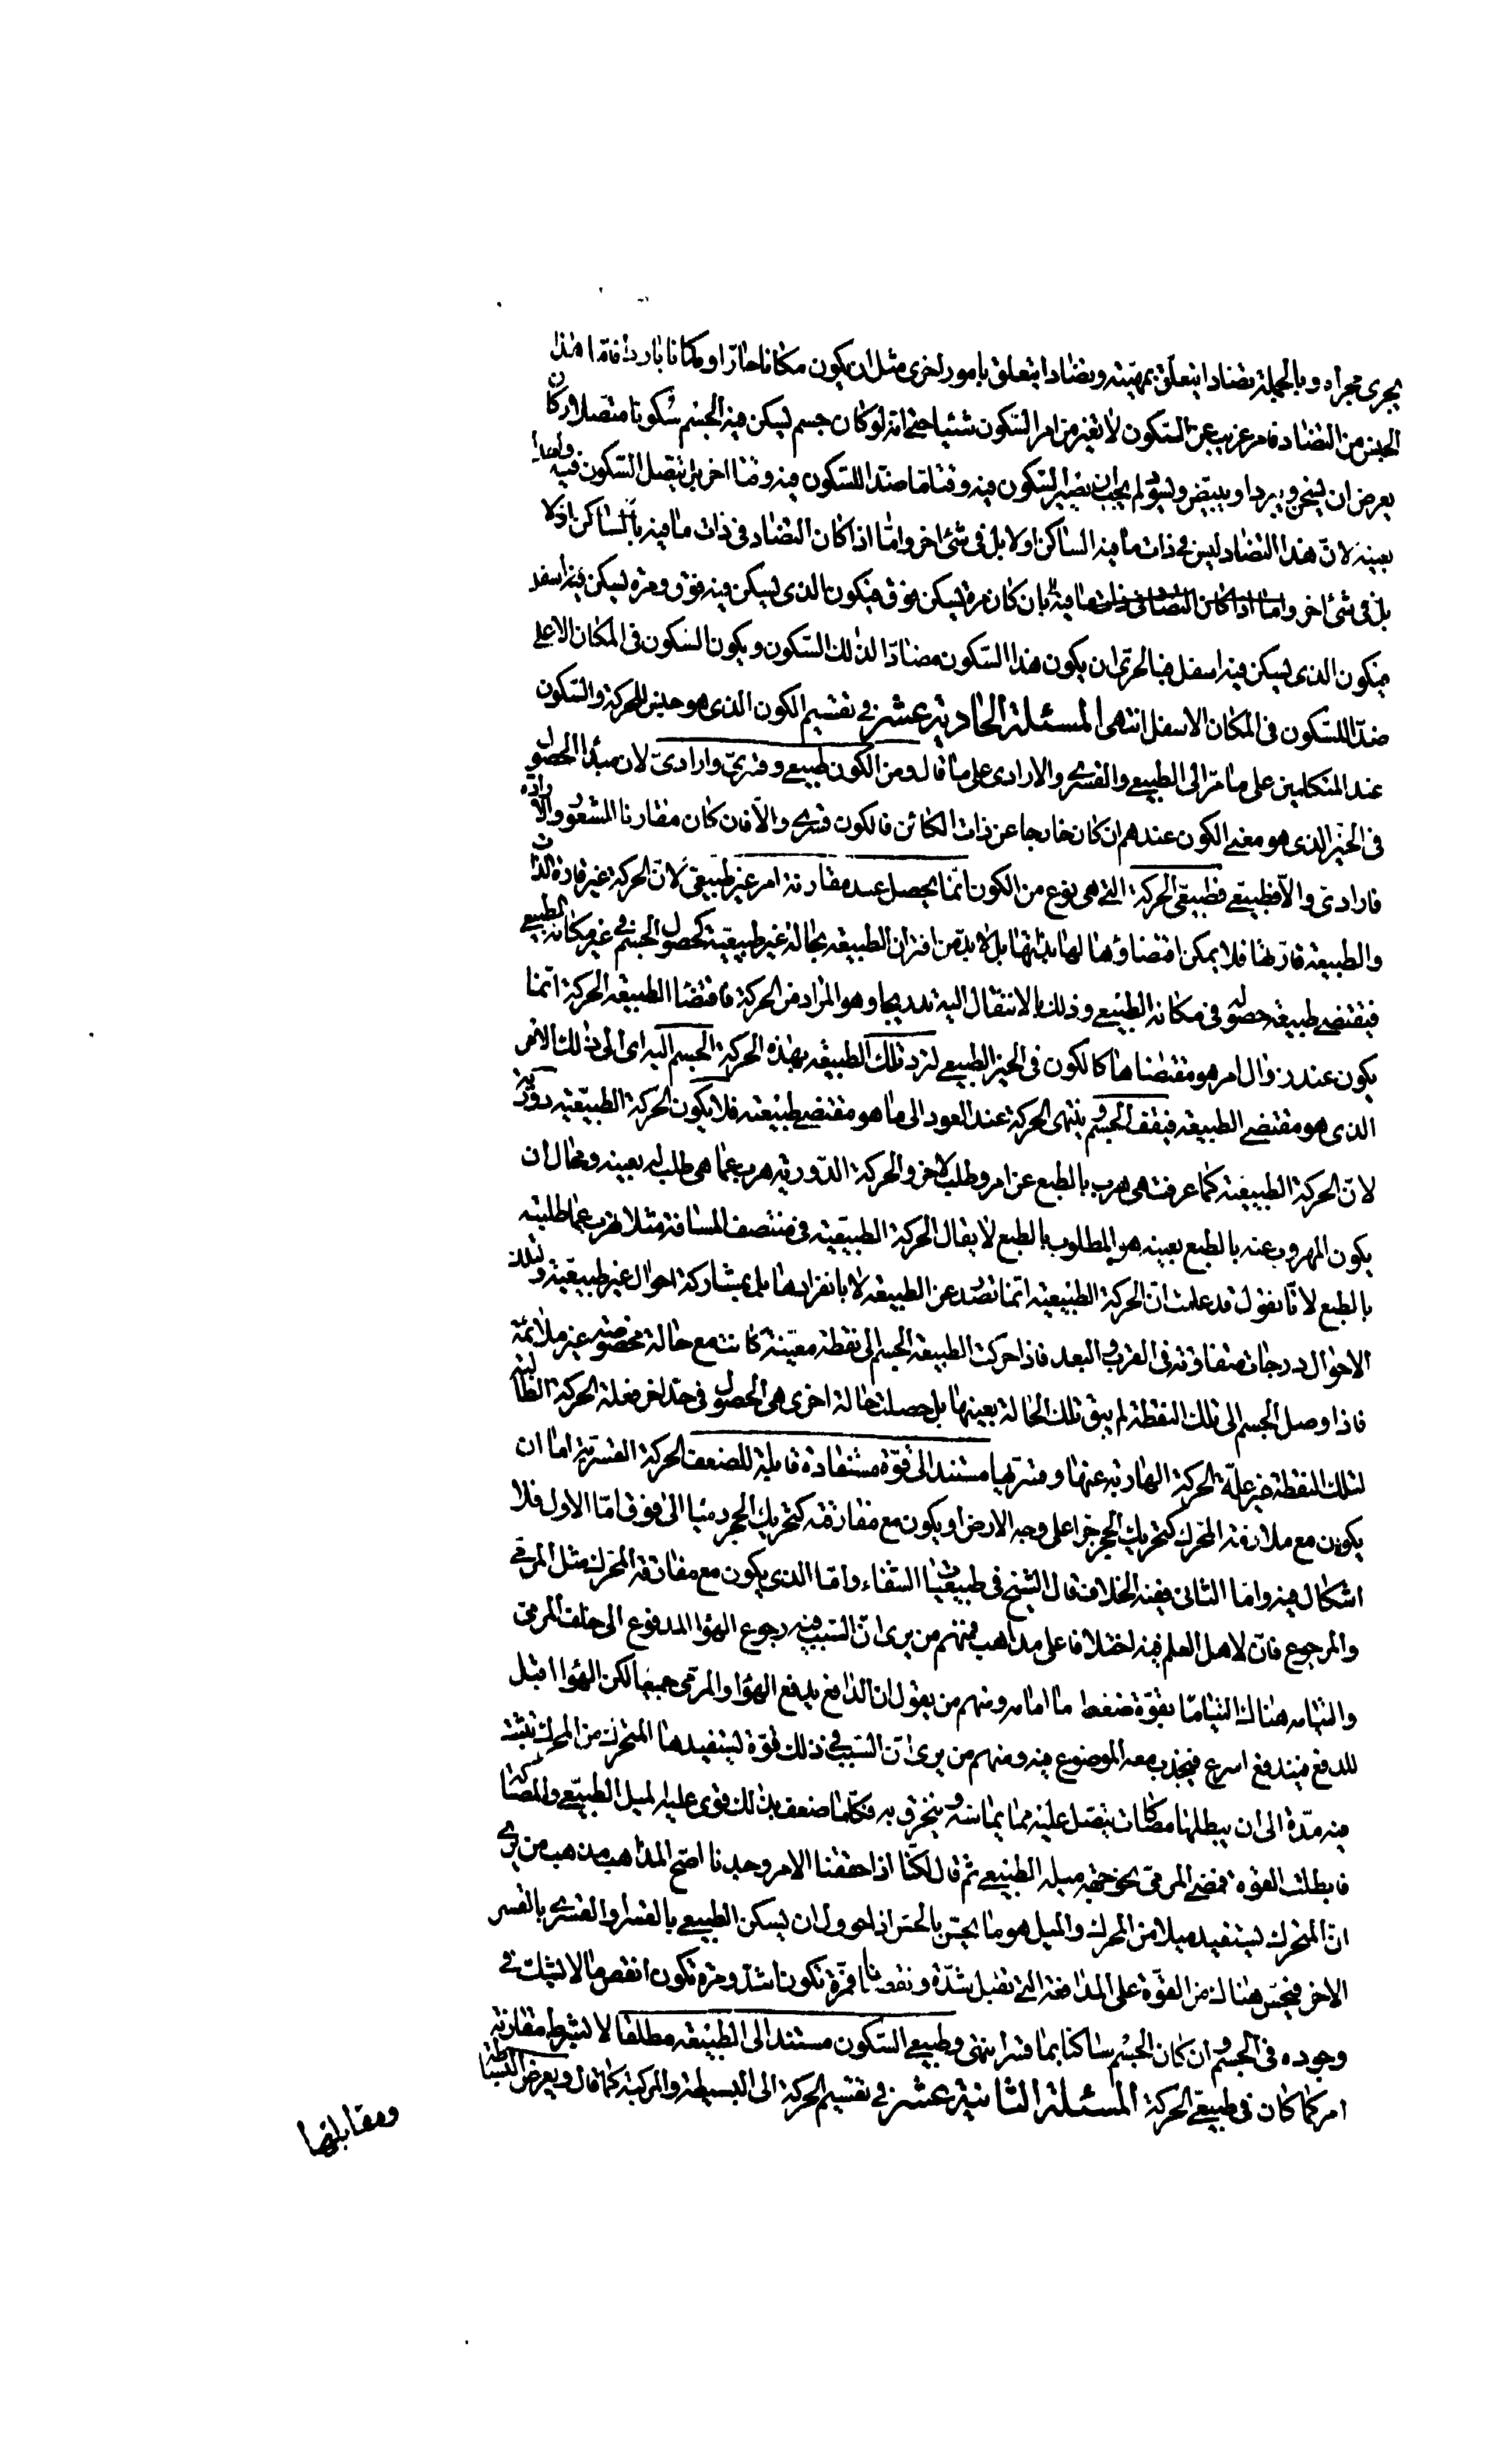 يجرى مجراه وبالجملة تضادا يتعلق بمهيته وتضادا يتعلق بامور اخرى مثل ان يكون مكانا حارّا او مكانا باردا فامّا هذا
الجنس من التضاد فامر غريب عن السّكون لا يغير من امر السّكون شيئا حتى انه لو كان جسم يسكن فيه الجسم سكونا متصلا وكان
يعرض ان يسخن ويبرد او يبيّض ويسودّ لم يجب ان يصير السّكون فيه وقتا مّا ضدّا للسّكون فيه وقتا اخر بل يتصل السّكون فيه واحدا
بعينه لانّ هذا التضاد ليس فى ذات ما فيه الساكن اولا بل فى شئ اخر وامّا اذا كان التضاد فى ذات ما فيه بالساكن اذ لا
بل فى شئ اخر واما اذا كان التضاد فى ذات ما فيه بان كان مرة يسكن فوق فيكون الذى يسكن فيه فوق ومرة يسكن فيه اسفل
فيكون الذى يسكن فيه اسفل فبالحرىّ ان يكون هذا السّكون مضادّا لذلك السّكون ويكون السّكون فى المكان الاعلى
ضدّا للسّكون فى المكان الاسفل انتهى المسئلة الحادية عشر فى تقسيم الكون الذى هو جنس للحركة والسّكون
عند المتكلمين على ما مرّ الى الطبيعى والقسرى والارادى على ما قال ومن الكون طبيعى وقسرىّ وارادىّ لان مبدأ الحصول
فى الحيّز الذى هو معنى الكون عندهم ان كان خارجا عن ذات الكائن فالكون قسرى والّا فان كان مقارنا للشعور والارادة
فارادى والّا فطبيعى فطبيعى الحركة التى هى نوع من الكون انّما يحصل عند مقارنة امر غير طبيعى لانّ الحركة غير قارّة الذات
والطبيعة قارّتها فلا يمكن اقتضاؤها لها بذاتها بل لا بدّ من اقتران الطبيعة بحالة غير طبيعيّة كحصول الجسم فى غير مكانه الطبيعى
فيقتضى طبيعته حصوله فى مكانه الطبيعى وذلك بالانتقال اليه تدريجا وهو المراد من الحركة فاقتضاء الطبيعة الحركة انّما
يكون عند زوال امر هو مقتضاها كالكون فى الحيز الطبيعى لتردّ تلك الطبيعة بهذه الحركة الجسم اليه اى الى ذلك الامر
الذى هو مقتضى الطبيعة فيقف الجسم وينتهى الحركة عند العود الى ما هو مقتضى طبيعته فلا يكون الحركة الطبيعيّة دوريّة
لانّ الحركة الطبيعيّة كما عرفت هى هرب بالطبع عن امر وطلب لاخر والحركة الدّوريّة هرب عمّا هى طلب له بعينه ومحال ان
يكون المهروب عنه بالطبع بعينه هو المطلوب بالطبع لا يقال الحركة الطبيعيّة فى منتصف المسافة مثلا هرب عمّا طلبته
بالطبع لانّا نقول قد علمت انّ الحركة الطبيعيّة انّما تصدر عن الطبيعة لا بانفرادها بل بمشاركة احوال غير طبيعيّة ولتلك
الاحوال درجات متفاوتة فى القرب والبعد فاذا حركت الطبيعة الجسم الى نقطة معيّنة كانت مع حالة مخصوصة غير ملائمة
فاذا وصل الجسم الى تلك النقطة لم يبق تلك الحالة بعينها بل حصلت حالة اخرى هى الحصول فى حدّ اخر فعلة الحركة الطالبة
لتلك النقطة غير علّة الحركة الهاربة عنها وقسريها مستند الى قوّة مستفادة قابلة للضعف الحركة القسريّة اما ان
يكون مع ملازمة المحرّك كتحريك الحجر جرا على وجه الارض او يكون مع مفارقته كتحريك الحجر رميا الى فوق امّا الاول فلا
اشكال فيه وامّا الثانى ففيه الخلاف قال الشيخ فى طبيعيّات الشفاء وامّا الذى يكون مع مفارقة المحرّك مثل المرمى
والمدحرج فانّ لاهل العلم فيه اختلافا على مذاهب فمنهم من يرى انّ السّبب فيه رجوع الهواء المدفوع الى خلف المرمىّ
والتيامه هناك التياما بقوّة ضغط ما امامه ومنهم من يقول ان الدافع يدفع الهواء والمرمى جميعا لكن الهواء اقبل
للدفع فيندفع اسرع فيجذب معه الموضوع فيه ومنهم من يرى انّ السّبب فى ذلك قوّة يستفيدها المتحرك من المحرك تثبت
فيه مدّة الى ان يبطلها مصاكات يتصل عليه ممّا يماسّه وينخرق به فكلّما ضعف بذلك قوى عليه الميل الطبيعى والمصاكة
فابطلت القوّة فمضى المرمىّ نحو جهة ميله الطبيعى ثم قال لكنّا اذا حققنا الامر وجدنا اصحّ المذاهب مذهب من يرى
انّ المتحرك يستفيد ميلا من المحرك والميل هو ما يحسّ بالحسّ اذا حوول ان يسكن الطبيعى بالقسر او القسرى بالقسر
الاخر فيحسّ هناك من القوّة على المدافعة التى تقبل شدّة ونقصانا فمرّة تكون اشدّ ومرة تكون انقص ما لا يشكّ فى
وجوده فى الجسم وان كان الجسم ساكنا بما قسر انتهى وطبيعى السّكون مستند الى الطبيعة مطلقا لا بشرط مقارنة
امر كما كان فى طبيعى الحركة المسئلة الثانية عشر فى تقسيم الحركة الى البسيطة والمركبة كما قال ويعرض البساطة
ومقابلها